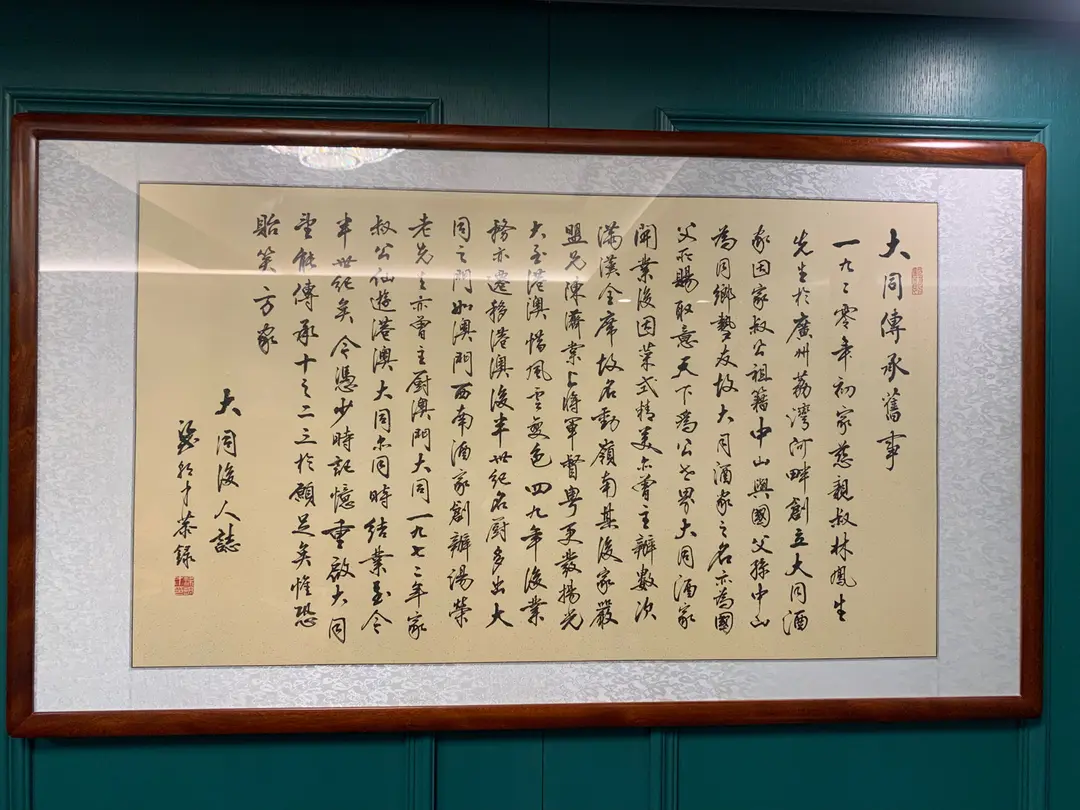 大同傳承舊事
一九二零年初家慈親叔林鳳生
先生於廣州荔灣河畔創立大同酒
家因家叔公祖籍中山與國父孫中山
為同鄉摯友故大同酒家之名亦為國
父所賜取意天下為公世界大同酒家
開業後因菜式精美亦曾主辦數次
滿漢全席故名動嶺南其後家嚴
盟兄陳濟棠上將軍督粵更發揚光
大至港澳惜風雲變色四九年後業
務亦遷移港澳後半世紀名厨多出大
同之門如澳門西南酒家創辦湯榮
老先生亦曾主厨澳門大同一九七二年家
叔公仙遊港澳大同亦同時結業至今
半世紀矣今憑少時記憶重啟大同
望能傳承十之二三於願足矣惟恐
貽笑方家
大同後人誌
恭錄